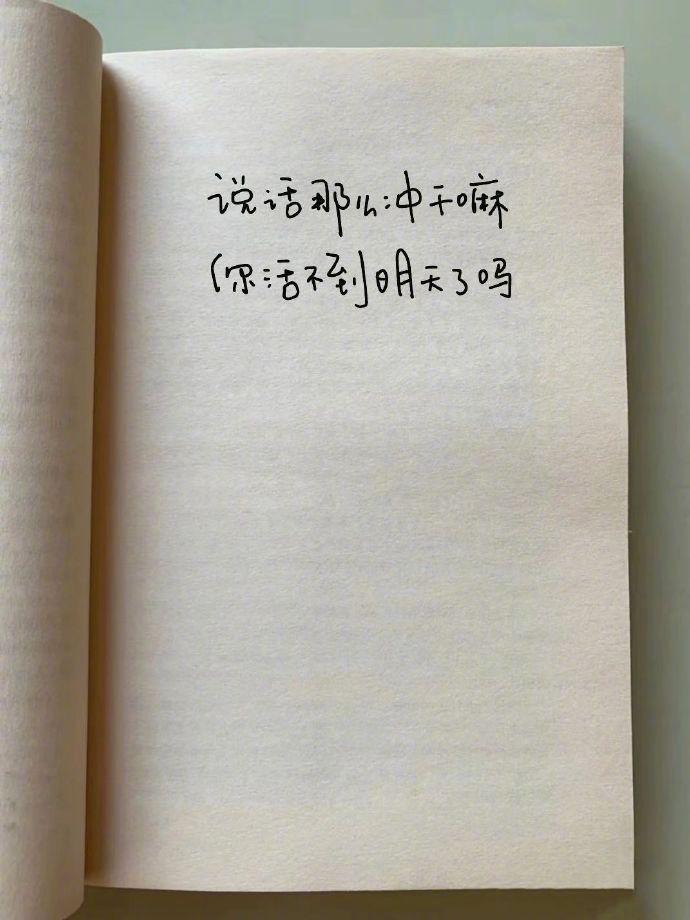 说话那么冲干嘛
你活不到明天了吗